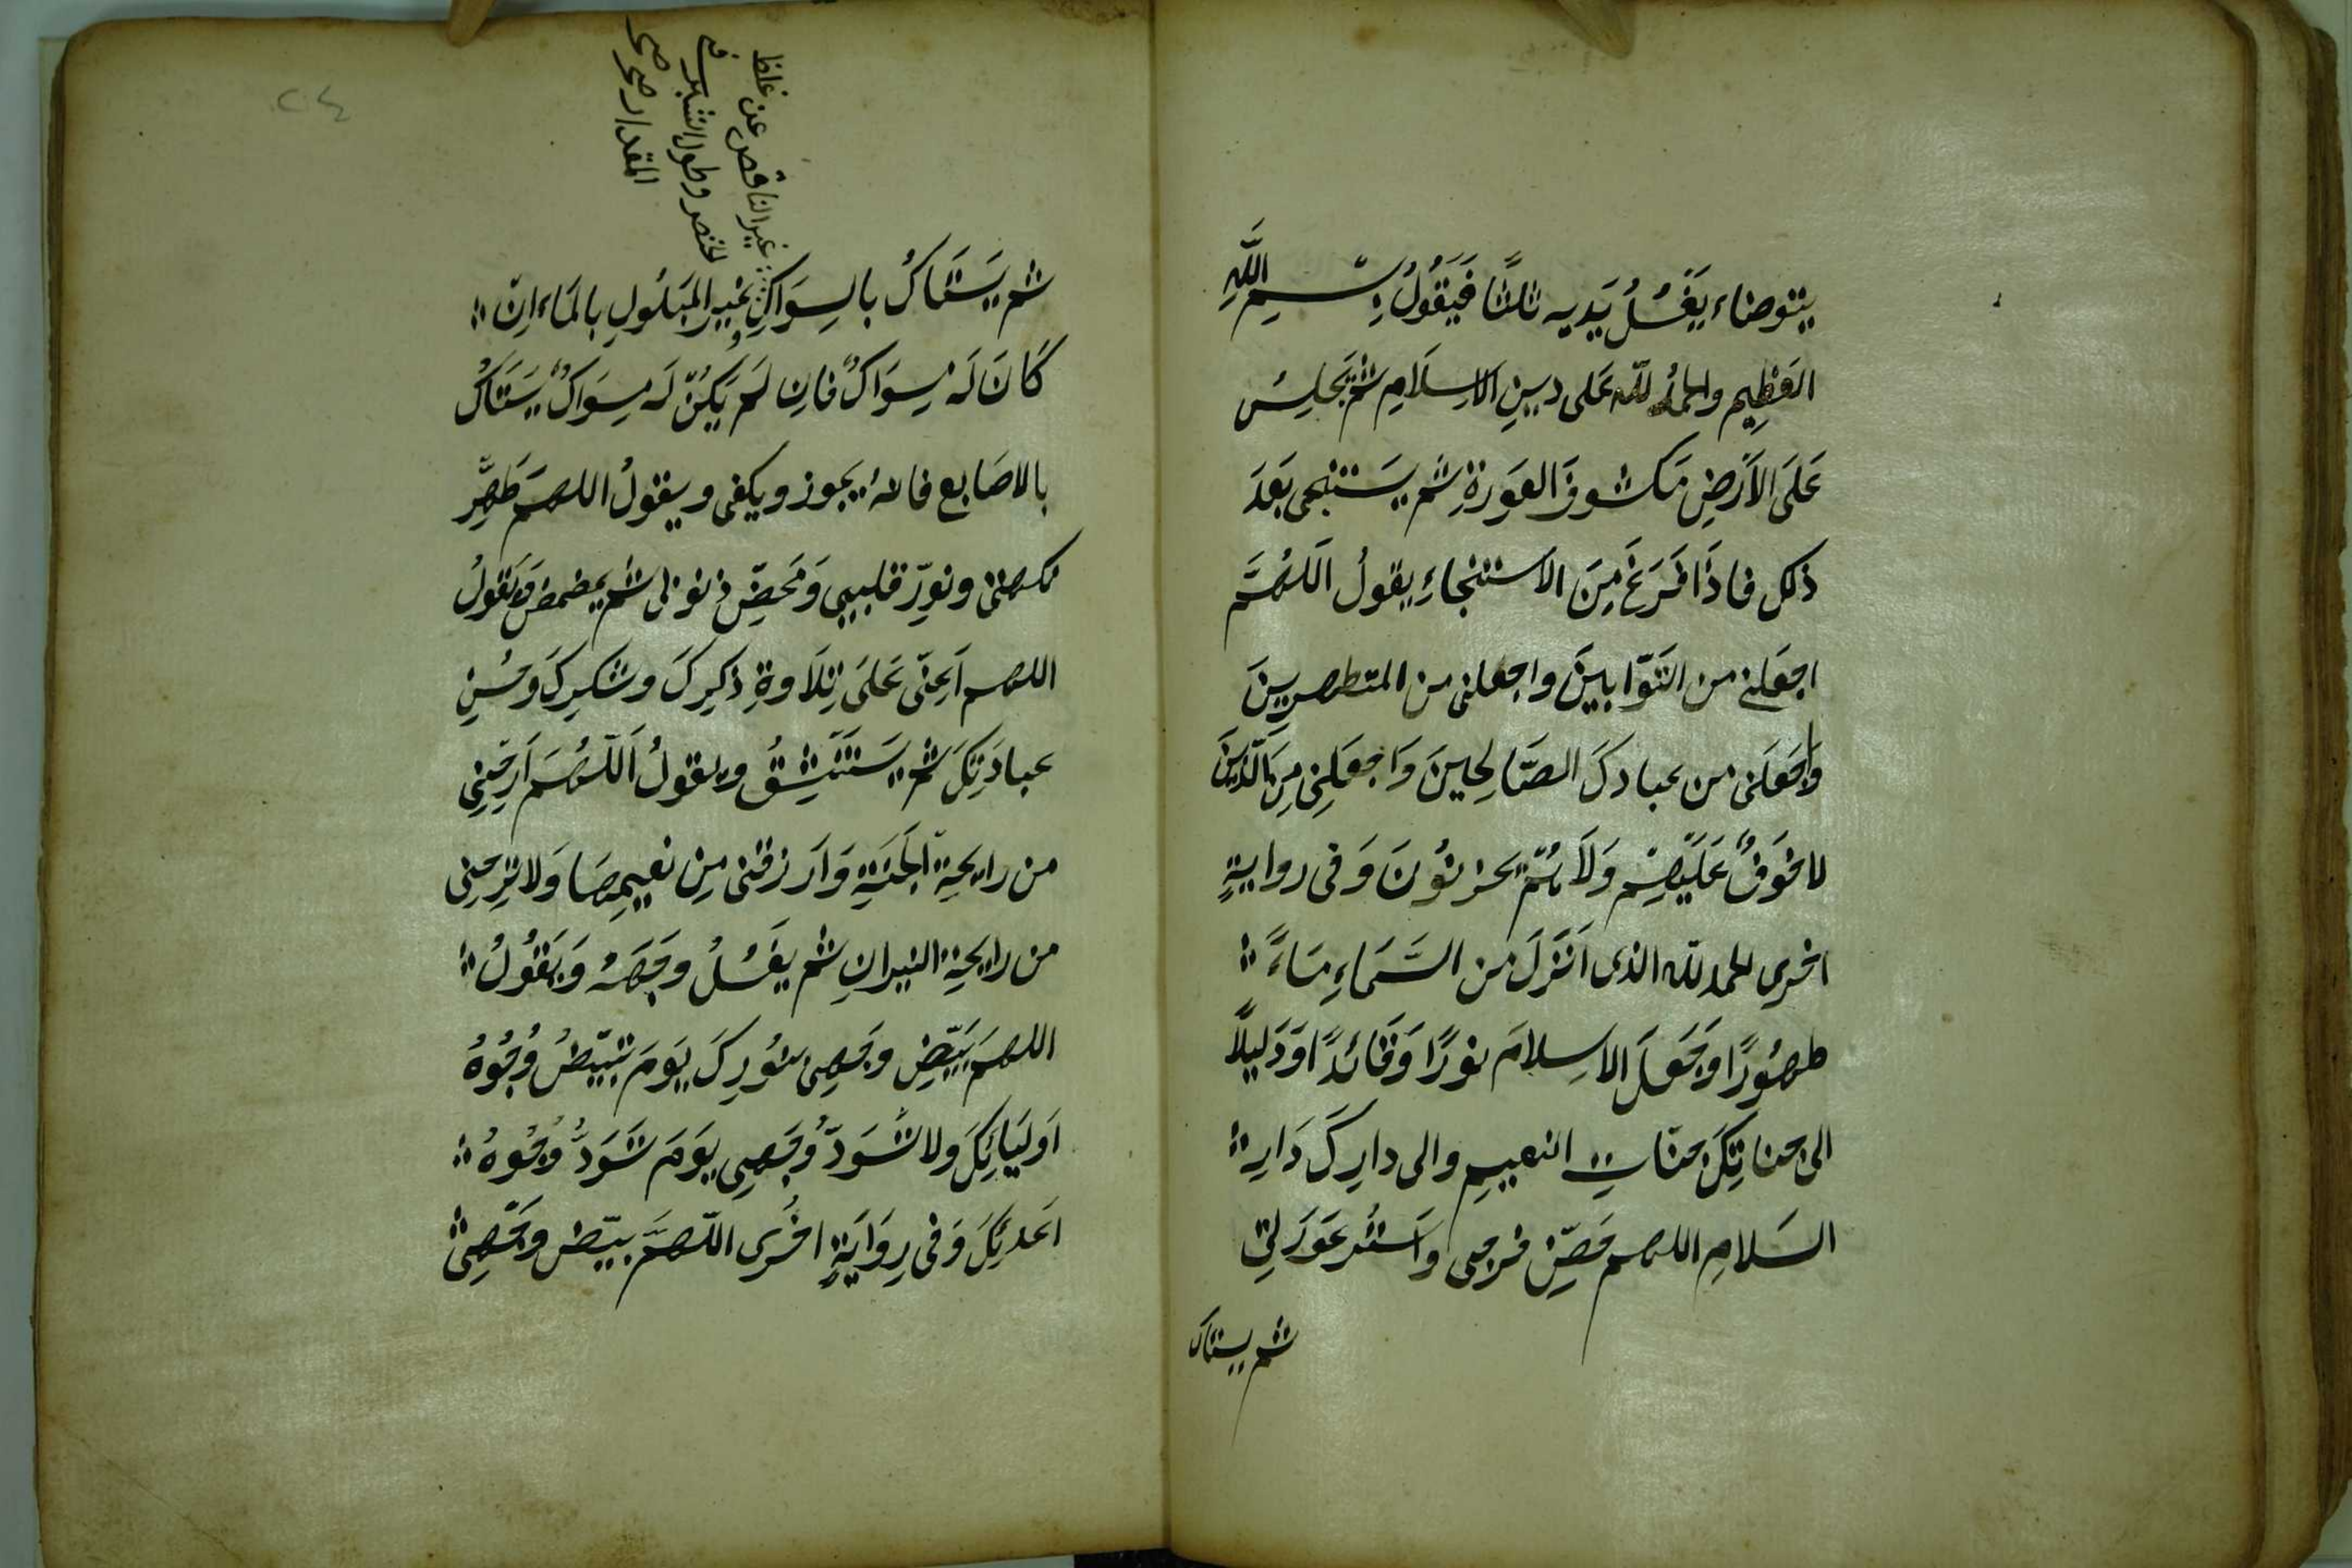 يتوضاء يَغْسُلُ يَديه ثلثًا فَيَقُولُ بِسْمِ اللَّهِ
العَظِيم والحمدُ للّه عَلى دينِ الاسِلَامِ ثم يَجلِسُ
عَلَى الاَرْضِ مَكشوفَ العَورَةِ ثم يَستنجى بَعدَ
ذلك فاذَا فَرَغَ مِنَ الاستنجاءِ يقولُ اَللهُمَّ
اجعَلنى من التَوّابينَ واجعلنى من المتطهرينَ
وَاجعَلنى من عبادكَ الصَّالحينَ وَاجعَلنِى مِنَ الّذينَ
لاخَوفٌ عَلَيهِمْ وَلَا هُمْ يحزنُونَ وَفى روايةٍ
اخرى الحمد للّه الذى اَنْزَلَ من السَّمَاءِ مَاءً
طهُورًا وَجَعَلَ الاسِلامَ نورًا وَقَائدًا وَدَليلًا
الى جناتِكَ جنّاتِ النعيمِ والى دارِكَ دَارِ
السَلامِ اللهم حَصِّنْ فرجى وَاستُر عَورَتى
ثم يستاك
ثم يَستَاكُ بالسِوَاكِ غيرِ المَبلُولِ بالمَاءِ اِنْ
كَانَ لَهُ سِوَاكٌ فان لَم يَكُنْ لَه سِوَاكٌ يَستَاكُ
بالاصَابع فانهُ يجوز ويكفى ويقولُ اللهمَ طَهِّر
نكهتى ونوِّر قلبى وَمَحِّض ذنوبى ثم يمضمض وَيَقولُ
اللهم اَعِنّى عَلَى تِلَاوةِ ذكرِكَ وشكرِكَ وحُسنِ
عبادَتِكَ ثم يَستَنْشِقُ ويقولُ اَللّهُمَ اَرِحْنِى
من رايحَةِ الجَنَةِ وَارزقنى مِن نعيمِهَا وَلا تُرِحنِى
من رايحَةِ النيرانِ ثم يغسُلُ وجهَهُ وَيَقُولُ
اللهمَ بَيّضِ وجهى بنُورِكَ يَومَ تبيَضُّ وُجُوهُ
اَولَيائِكَ ولا تُسَوّد وَجهِى يَومَ تَسْوَدُّ وُجُوهُ
اعدائِكَ وَفى رِوَايَةٍ اخرى اللّهمَّ بيّض وجهِى
غير الناقص عن غلظ
الخنصر وطول الشبر فى
المقدار صح صح